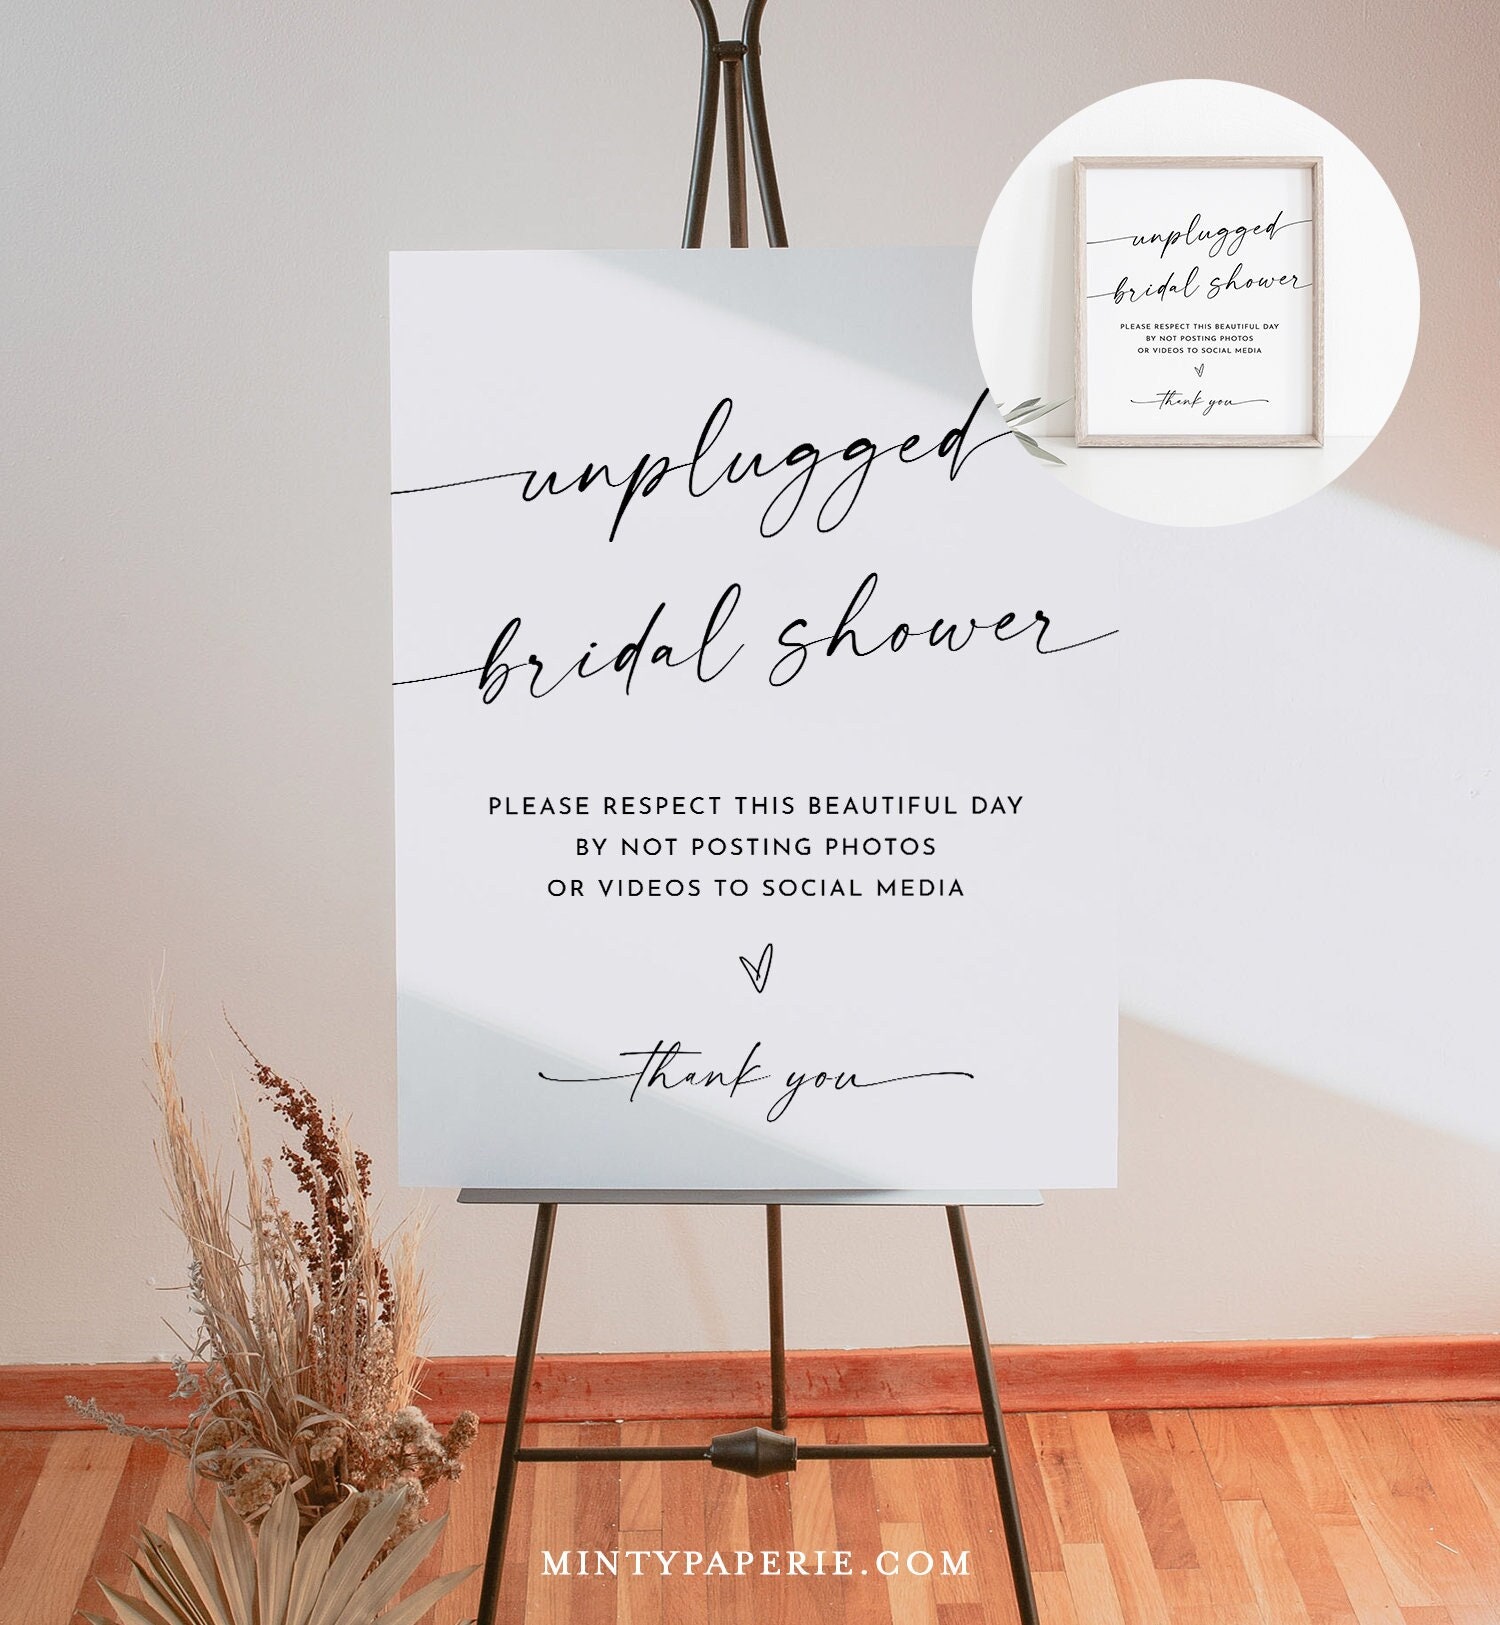 unplugged
bridal shower
PLEASE RESPECT THIS BEAUTIFUL DAY
BY NOT POSTING PHOTOS
OR VIDEOS TO SOCIAL MEDIA
thank you
unplugged
bridal shower
PLEASE RESPECT THIS BEAUTIFUL DAY
BY NOT POSTING PHOTOS
OR VIDEOS TO SOCIAL MEDIA
thank you
MINTYPAPERIE.COM